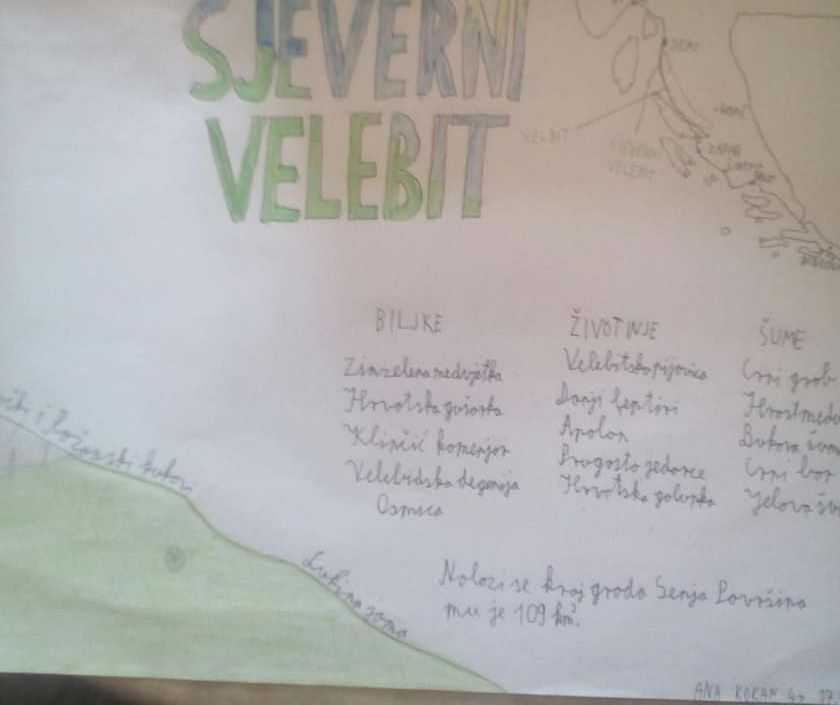 SJEVERNI
VELEBIT
SENJ
VELEBIT
SJEVERNI
VELEBIT
ZADAR
BILJKE
Zimzelena medvjetka
Hrvatska gušarka
Klinčić komenjar
Velebidska degenija
Osmica
ŽIVOTINJE
Velebitska pijavica
Danji leptiri
Apolon
Prugasto jedarce
Hrvatska golupka
ŠUME
Crni grab
Hrast
Bukova
Crni bor
Jelova
i Rožanski kukovi
Lukina jama
Nalazi se kraj grada Senja Površina
mu je 109 km².
ANA